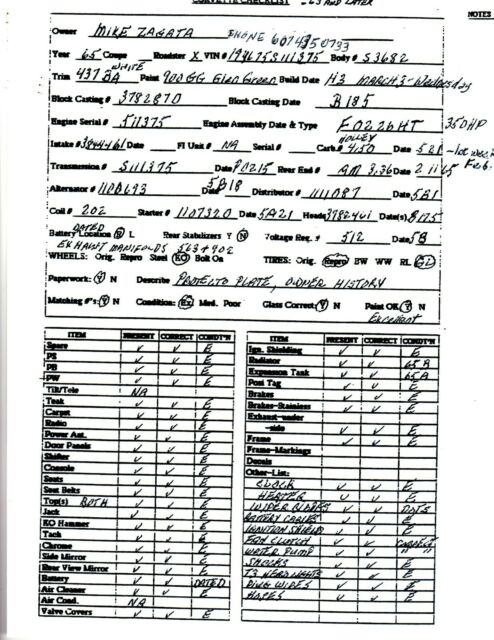 CORVETTE CHECKLIST - 63 AND LATER
NOTES
Owner MIKE ZAGATA PHONE 6074350733
Year 65 Coupe Roadster X VIN# 194675S111375 Body# S3682
WHITE
Trim 437BA Paint 900 GG Glen Green Build Date H3 MARCH 3 - Wednesday
Block Casting# 3782870 Block Casting Date B185
Engine Serial# 511375 Engine Assembly Date & Type F0226HT 350HP
HOLLEY
Intake# 3844461 Date FI Unit# NA Serial# Carb.# 450 Date 521 - 1st week Feb.
Transmission# S111375 Date P0215 Rear End# AM 3.36 Date 2 11 65
Alternator# 1100693 Date 5B18 Distributor# 1111087 Date 5B1
Coil# 202 Starter# 1107320 Date 5A21 Heads 3782461 Date(s)
DATED
Battery Location R L Rear Stabilizers Y N Voltage Reg.# 512 Date 5B
EXHAUST MANIFOLDS 563 + 902
WHEELS: Orig. Repro Steel KO Bolt On TIRES: Orig. Repro BW WW RL GL
Paperwork: Y N Describe PROTECTO PLATE, OWNER HISTORY
Matching #'s: Y N Condition: Ex Med. Poor Glass Correct: Y N Paint OK Y N
Excellent
ITEM PRESENT CORRECT CONDT'N
Spare ✓ ✓ E
PS ✓ ✓ E
PB ✓ ✓ E
PW ✓ ✓ E
Tilt/Tele NA
Teak ✓ ✓ E
Carpet ✓ ✓ E
Radio ✓ ✓ E
Power Ant. ✓ ✓ E
Door Panels ✓ ✓ E
Shifter ✓ ✓ E
Console ✓ ✓ E
Seats ✓ ✓ E
Seat Belts ✓ ✓ E
Top(s) BOTH ✓ ✓ E
Jack ✓ ✓ E
KO Hammer ✓ ✓ E
Tach ✓ ✓ E
Chrome ✓ ✓ E
Side Mirror ✓ ✓ E
Rear View Mirror ✓ ✓ E
Battery ✓ ✓ DATED
Air Cleaner ✓ ✓ E
Air Cond. NA
Valve Covers ✓ ✓ E
ITEM PRESENT CORRECT CONDT'N
Ign. Shielding ✓ ✓ E
Radiator ✓ ✓ 65A
Expansion Tank ✓ ✓ 65A
Posi Tag ✓ ✓ E
Brakes ✓ ✓ E
Brakes-Stainless ✓ ✓ E
Exhaust-under
-side ✓ ✓ E
Frame ✓ ✓ E
Frame-Markings
Decals
Other-List:
CLOCK ✓ ✓ E
HEATER ✓ ✓ E
WIPER BLADES ✓ ✓ DOTS
BATTERY CABLES ✓ ✓ E
IGNITION SHIELD ✓ ✓ E
FAN CLUTCH ✓ ✓ CORRECT
WATER PUMP ✓ ✓ " "
SHOCKS ✓ ✓ E
T3 HEADLIGHTS ✓ ✓ E
PLUG WIRES ✓ ✓ E
HOSES ✓ ✓ E